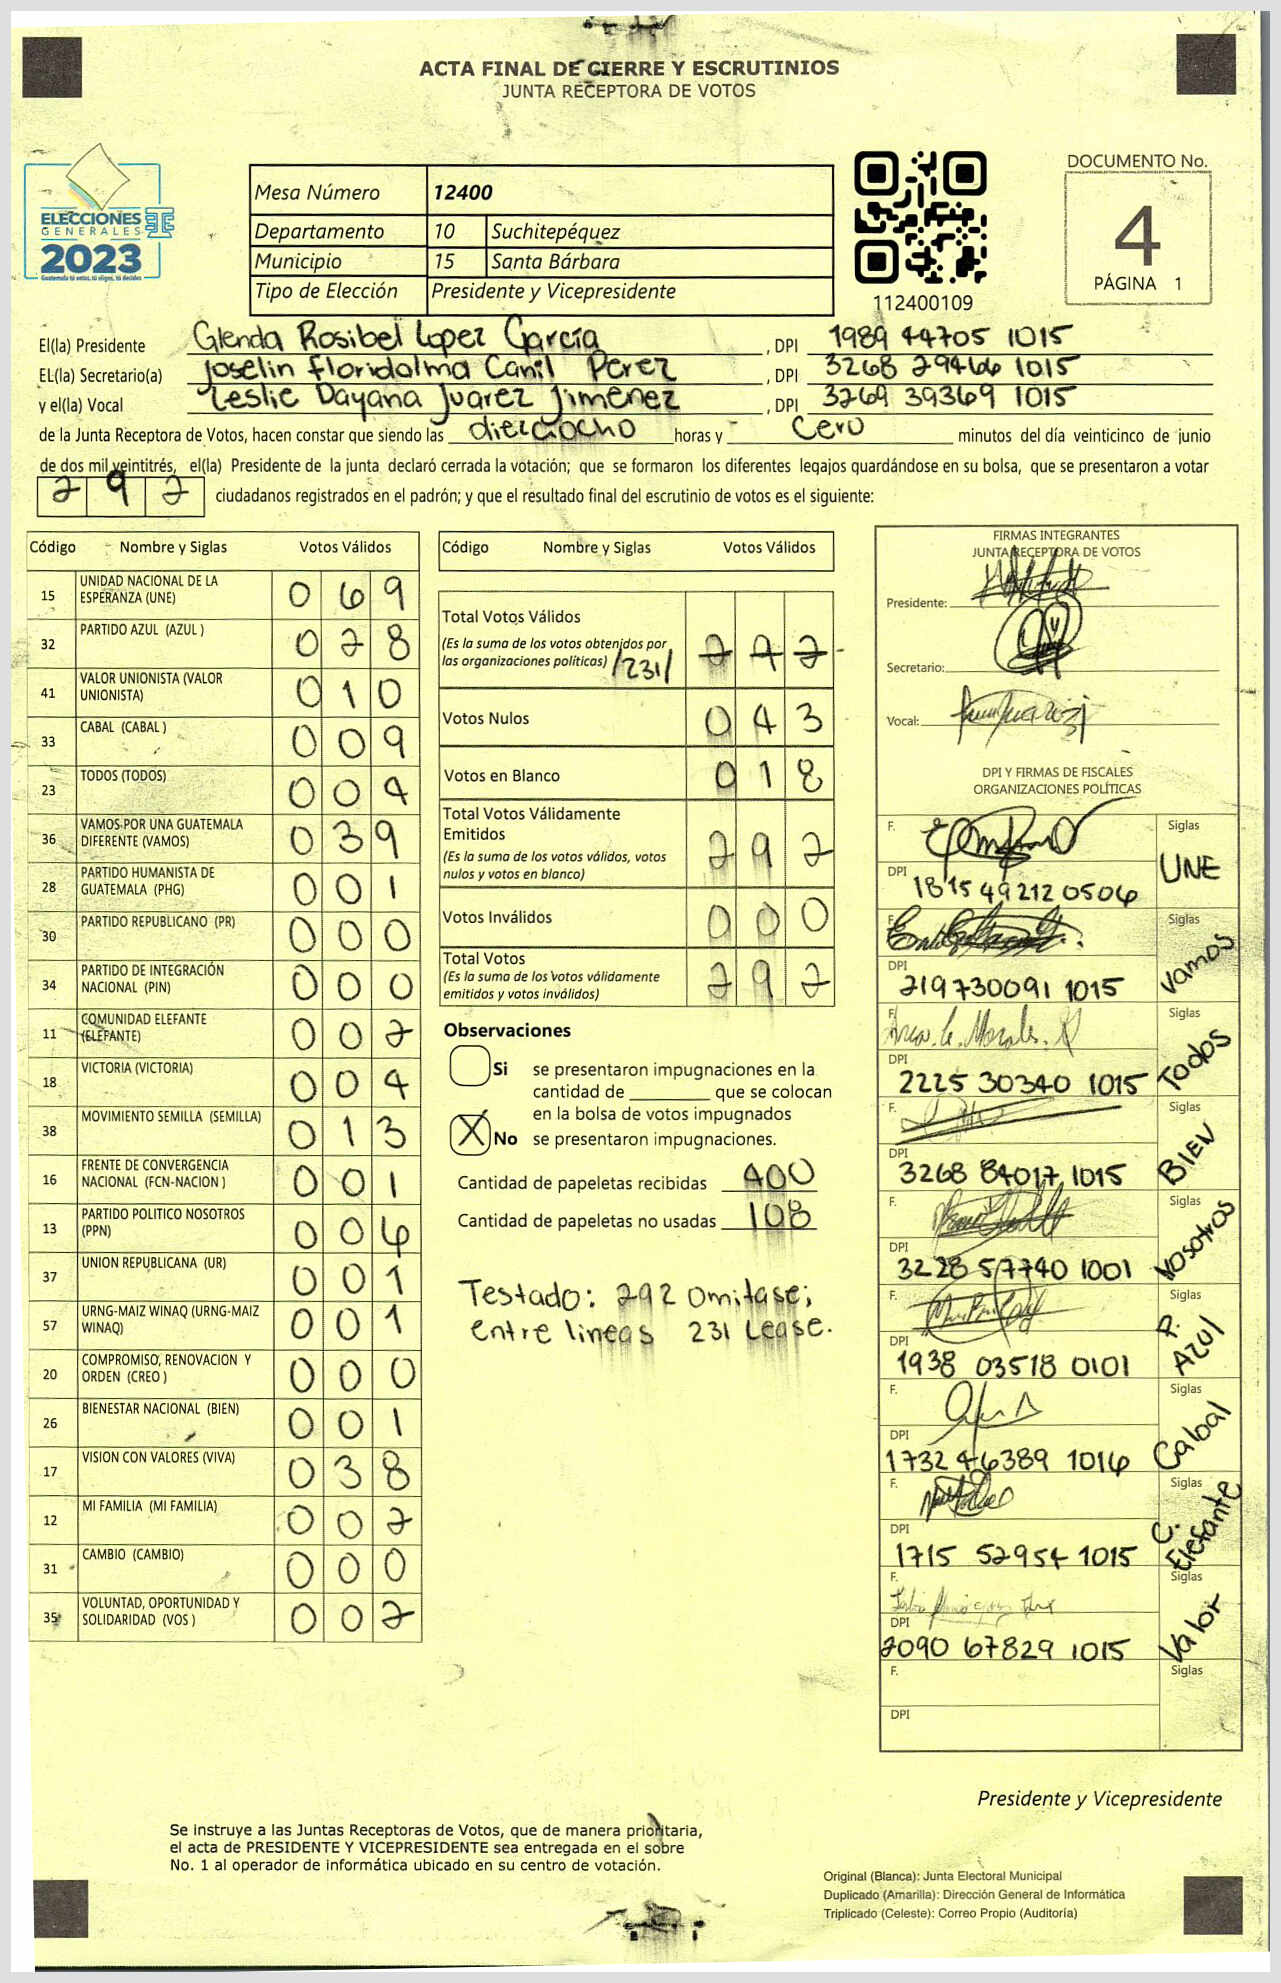 ACTA FINAL DE CIERRE Y ESCRUTINIOS
JUNTA RECEPTORA DE VOTOS
ELECCIONES
GENERALES
2023
Guatemala tú votas, tú eliges, tú decides
Mesa Número 12400
Departamento 10 Suchitepéquez
Municipio 15 Santa Bárbara
Tipo de Elección Presidente y Vicepresidente
112400109
DOCUMENTO No.
4
PÁGINA 1
El(la) Presidente Glenda Rosibel Lopez García , DPI 1989 44705 1015
EL(la) Secretario(a) Joselin Floridalma Canil Perez , DPI 3268 29466 1015
y el(la) Vocal Leslie Dayana Juarez Jimenez , DPI 3269 39369 1015
de la Junta Receptora de Votos, hacen constar que siendo las dieciocho horas y cero minutos del día veinticinco de junio
de dos mil veintitrés, el(la) Presidente de la junta declaró cerrada la votación; que se formaron los diferentes legajos guardándose en su bolsa, que se presentaron a votar
292 ciudadanos registrados en el padrón; y que el resultado final del escrutinio de votos es el siguiente:
Código Nombre y Siglas Votos Válidos
15 UNIDAD NACIONAL DE LA ESPERANZA (UNE) 069
32 PARTIDO AZUL (AZUL ) 028
41 VALOR UNIONISTA (VALOR UNIONISTA) 010
33 CABAL (CABAL ) 009
23 TODOS (TODOS) 004
36 VAMOS POR UNA GUATEMALA DIFERENTE (VAMOS) 039
28 PARTIDO HUMANISTA DE GUATEMALA (PHG) 001
30 PARTIDO REPUBLICANO (PR) 000
34 PARTIDO DE INTEGRACIÓN NACIONAL (PIN) 000
11 COMUNIDAD ELEFANTE (ELEFANTE) 002
18 VICTORIA (VICTORIA) 004
38 MOVIMIENTO SEMILLA (SEMILLA) 013
16 FRENTE DE CONVERGENCIA NACIONAL (FCN-NACION ) 001
13 PARTIDO POLITICO NOSOTROS (PPN) 006
37 UNION REPUBLICANA (UR) 001
57 URNG-MAIZ WINAQ (URNG-MAIZ WINAQ) 001
20 COMPROMISO, RENOVACION Y ORDEN (CREO ) 000
26 BIENESTAR NACIONAL (BIEN) 001
17 VISION CON VALORES (VIVA) 038
12 MI FAMILIA (MI FAMILIA) 002
31 CAMBIO (CAMBIO) 000
35 VOLUNTAD, OPORTUNIDAD Y SOLIDARIDAD (VOS ) 002
Código Nombre y Siglas Votos Válidos
Total Votos Válidos
(Es la suma de los votos obtenidos por
las organizaciones políticas) /231/ 292
Votos Nulos 043
Votos en Blanco 018
Total Votos Válidamente
Emitidos
(Es la suma de los votos válidos, votos
nulos y votos en blanco) 292
Votos Inválidos 000
Total Votos
(Es la suma de los votos válidamente
emitidos y votos inválidos) 292
Observaciones
Si se presentaron impugnaciones en la
cantidad de ________ que se colocan
en la bolsa de votos impugnados
X No se presentaron impugnaciones.
Cantidad de papeletas recibidas 400
Cantidad de papeletas no usadas 108
Testado: 292 Omitase;
entre lineas 231 Lease.
FIRMAS INTEGRANTES
JUNTA RECEPTORA DE VOTOS
Presidente:
Secretario:
Vocal:
DPI Y FIRMAS DE FISCALES
ORGANIZACIONES POLÍTICAS
F. Siglas
DPI 1815 49212 0506 UNE
F. Siglas
DPI 219730091 1015 Vamos
F. Siglas
DPI 2225 30340 1015 Todos
F. Siglas
DPI 3268 84017 1015 BIEN
F. Siglas
DPI 3228 57740 1001 Nosotros
F. Siglas
DPI 1938 03518 0101 P. AZUl
F. Siglas
DPI 1732 46389 1016 Cabal
F. Siglas
DPI 1715 52954 1015 C. Elefante
F. Siglas
DPI 2090 67829 1015 Valor
F. Siglas
DPI
Presidente y Vicepresidente
Se instruye a las Juntas Receptoras de Votos, que de manera prioritaria,
el acta de PRESIDENTE Y VICEPRESIDENTE sea entregada en el sobre
No. 1 al operador de informática ubicado en su centro de votación.
Original (Blanca): Junta Electoral Municipal
Duplicado (Amarilla): Dirección General de Informática
Triplicado (Celeste): Correo Propio (Auditoría)